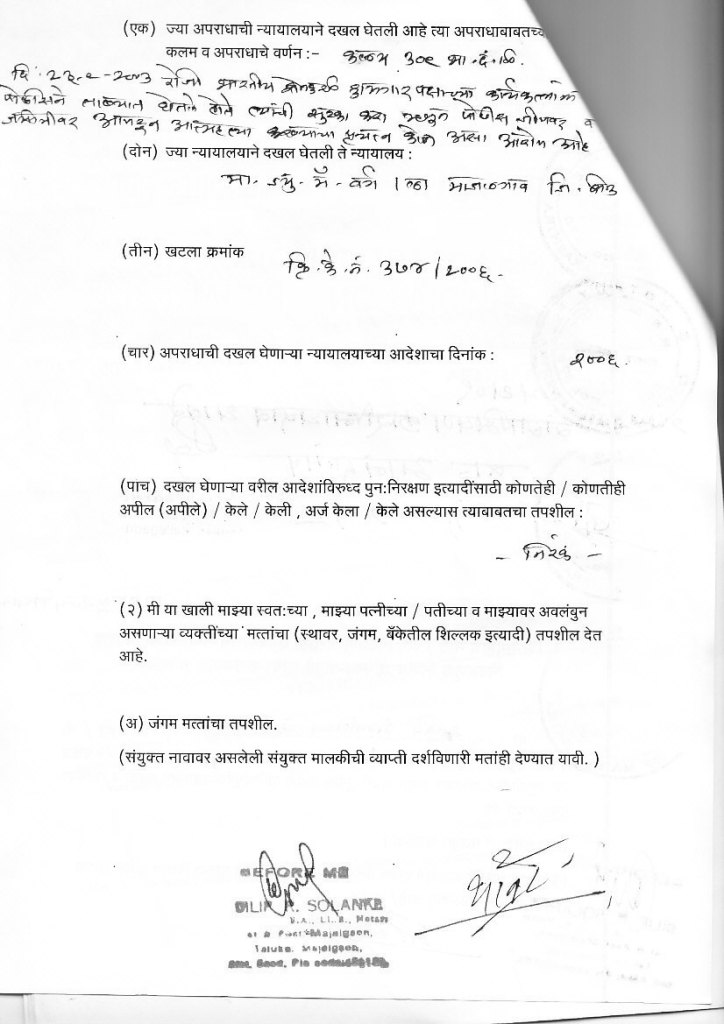 (एक) ज्या अपराधाची न्यायालयाने दखल घेतली आहे त्या अपराधाबाबतच्या
कलम व अपराधाचे वर्णन :- कलम ३०९ भा. दं. वि.
रोजी भारतीय कामगार पक्षाच्या कार्यकर्त्यांना
पोलीसने ताब्यात घेतले होते त्यांची सुटका करा म्हणून पोलीस व
आत्महत्या करण्याचा प्रयत्न केला असा आरोप आहे
(दोन) ज्या न्यायालयाने दखल घेतली ते न्यायालय :
मा. वर्ग १ ला माजलगाव जि. बीड
(तीन) खटला क्रमांक
क्रि. के. नं. ३७४/२००६.
(चार) अपराधाची दखल घेणाऱ्या न्यायालयाच्या आदेशाचा दिनांक : २००६.
(पाच) दखल घेणाऱ्या वरील आदेशांविरुध्द पुन:निरक्षण इत्यादींसाठी कोणतेही / कोणतीही
अपील (अपीले) / केले / केली , अर्ज केला / केले असल्यास त्याबाबतचा तपशील :
- निरंक -
(२) मी या खाली माझ्या स्वत:च्या , माझ्या पत्नीच्या / पतीच्या व माझ्यावर अवलंवुन
असणाऱ्या व्यक्तींच्या मत्तांचा (स्थावर, जंगम, बॅकेतील शिल्लक इत्यादी) तपशील देत
आहे.
(अ) जंगम मत्तांचा तपशील.
(संयुक्त नावावर असलेली संयुक्त मालकीची व्याप्ती दर्शविणारी मतांही देण्यात यावी. )
BEFORE ME
DILIP A. SOLANKE
B.A., LL.B., Notary
at & Post Majalgaon,
Taluka. Majalgaon,